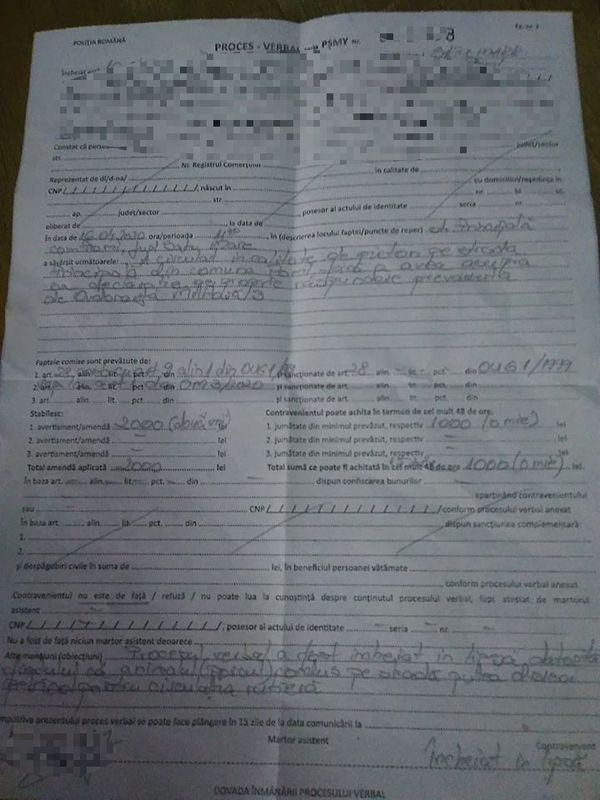 POLIȚIA ROMÂNĂ
PROCES - VERBAL seria PȘMY Nr. 3
Încheiat
Constat că
str. Nr. Registrul Comerțului județ/sector
Reprezentat de dl/d-na/ în calitate de
CNP / / / / / / / / / / / / , născut în cu domiciliu/reședința în
str. nr. bl. sc.
ap. județ/sector posesor al actului de identitate seria nr.
eliberat de la data de
în data de 16.04.2020 ora/perioada în (descrierea locului faptei/puncte de reper) str. Principală
jud Satu Mare
a săvârșit următoarele: A circulat în calitate de pieton pe strada
principală din comuna fără a avea asupra
sa declarație pe proprie răspundere prevăzută
de Ordonanța Militară 3
Faptele comise sunt prevăzute de:
1. art. alin. lit. pct. din OUG 1/99 și sancționate de art. 28 alin. — lit. — pct. din OUG 1/1999
2. art. alin. lit. pct. din OM 3/2020 și sancționate de art. alin. lit. pct. din
3. art. alin. lit. pct. din și sancționate de art. alin. lit. pct. din
Stabilesc: Contravenientul poate achita în termen de cel mult 48 de ore:
1. avertisment/amendă 2000 (două mii) lei 1. jumătate din minimul prevăzut, respectiv 1000 (o mie) lei
2. avertisment/amendă — lei 2. jumătate din minimul prevăzut, respectiv — lei
3. avertisment/amendă — lei 3. jumătate din minimul prevăzut, respectiv — lei
Total amendă aplicată 2000 lei Total sumă ce poate fi achitată în cel mult 48 de ore 1000 (o mie) lei.
În baza art. alin. lit. pct. din dispun confiscarea bunurilor
aparținând contravenientului
sau CNP / / / / / / / / / / / / conform procesului verbal anexat
În baza art. alin. lit. pct. din dispun sancțiunea complementară:
1.
2.
și despăgubiri civile în suma de lei, în beneficiul persoanei vătămate
conform procesului verbal anexat.
Contravenientul nu este de față / refuză / nu poate lua la cunoștință despre conținutul procesului verbal, fapt atestat de martorul
asistent
CNP / / / / / / / / / / / / , posesor al actului de identitate — seria — nr. —
Nu a fost de față niciun martor asistent deoarece
Alte mențiuni (obiecțiuni) Procesul verbal a fost încheiat în lipsă datorită
faptului că animalul (porcul) rămas pe stradă putea deveni
pericol pentru circulația rutieră
Împotriva prezentului proces verbal se poate face plângere în 15 zile de la data comunicării la
Martor asistent Contravenient
Încheiat în lipsă
DOVADA ÎNMÂNĂRII PROCESULUI VERBAL